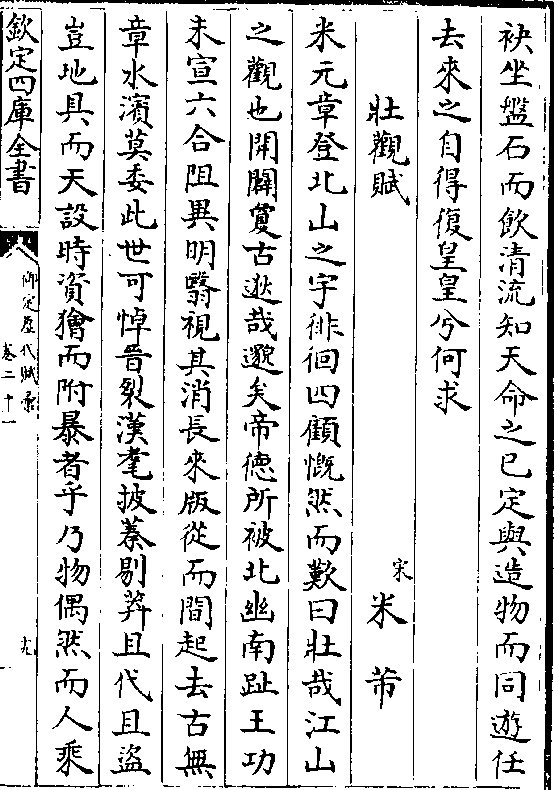 袂坐盤石而飲清流知天命之已定與造物而同遊任
去來之自得復皇皇兮何求
壯觀賦
宋 米芾
米元章登北山之宇徘徊四顧慨然而歎曰壯哉江山
之觀也開闢夐古逖哉邈矣帝德所被北幽南趾王功
未宣六合阻異明翳視其消長來版從而間起去古無
章水濱莫委此世可悼晉裂漢耄披蓁剔莽且代且盜
豈地具而天設時資獪而附暴者乎乃物偶然而人乘
欽定四庫全書
御定歷代賦彙
卷二十一
十九